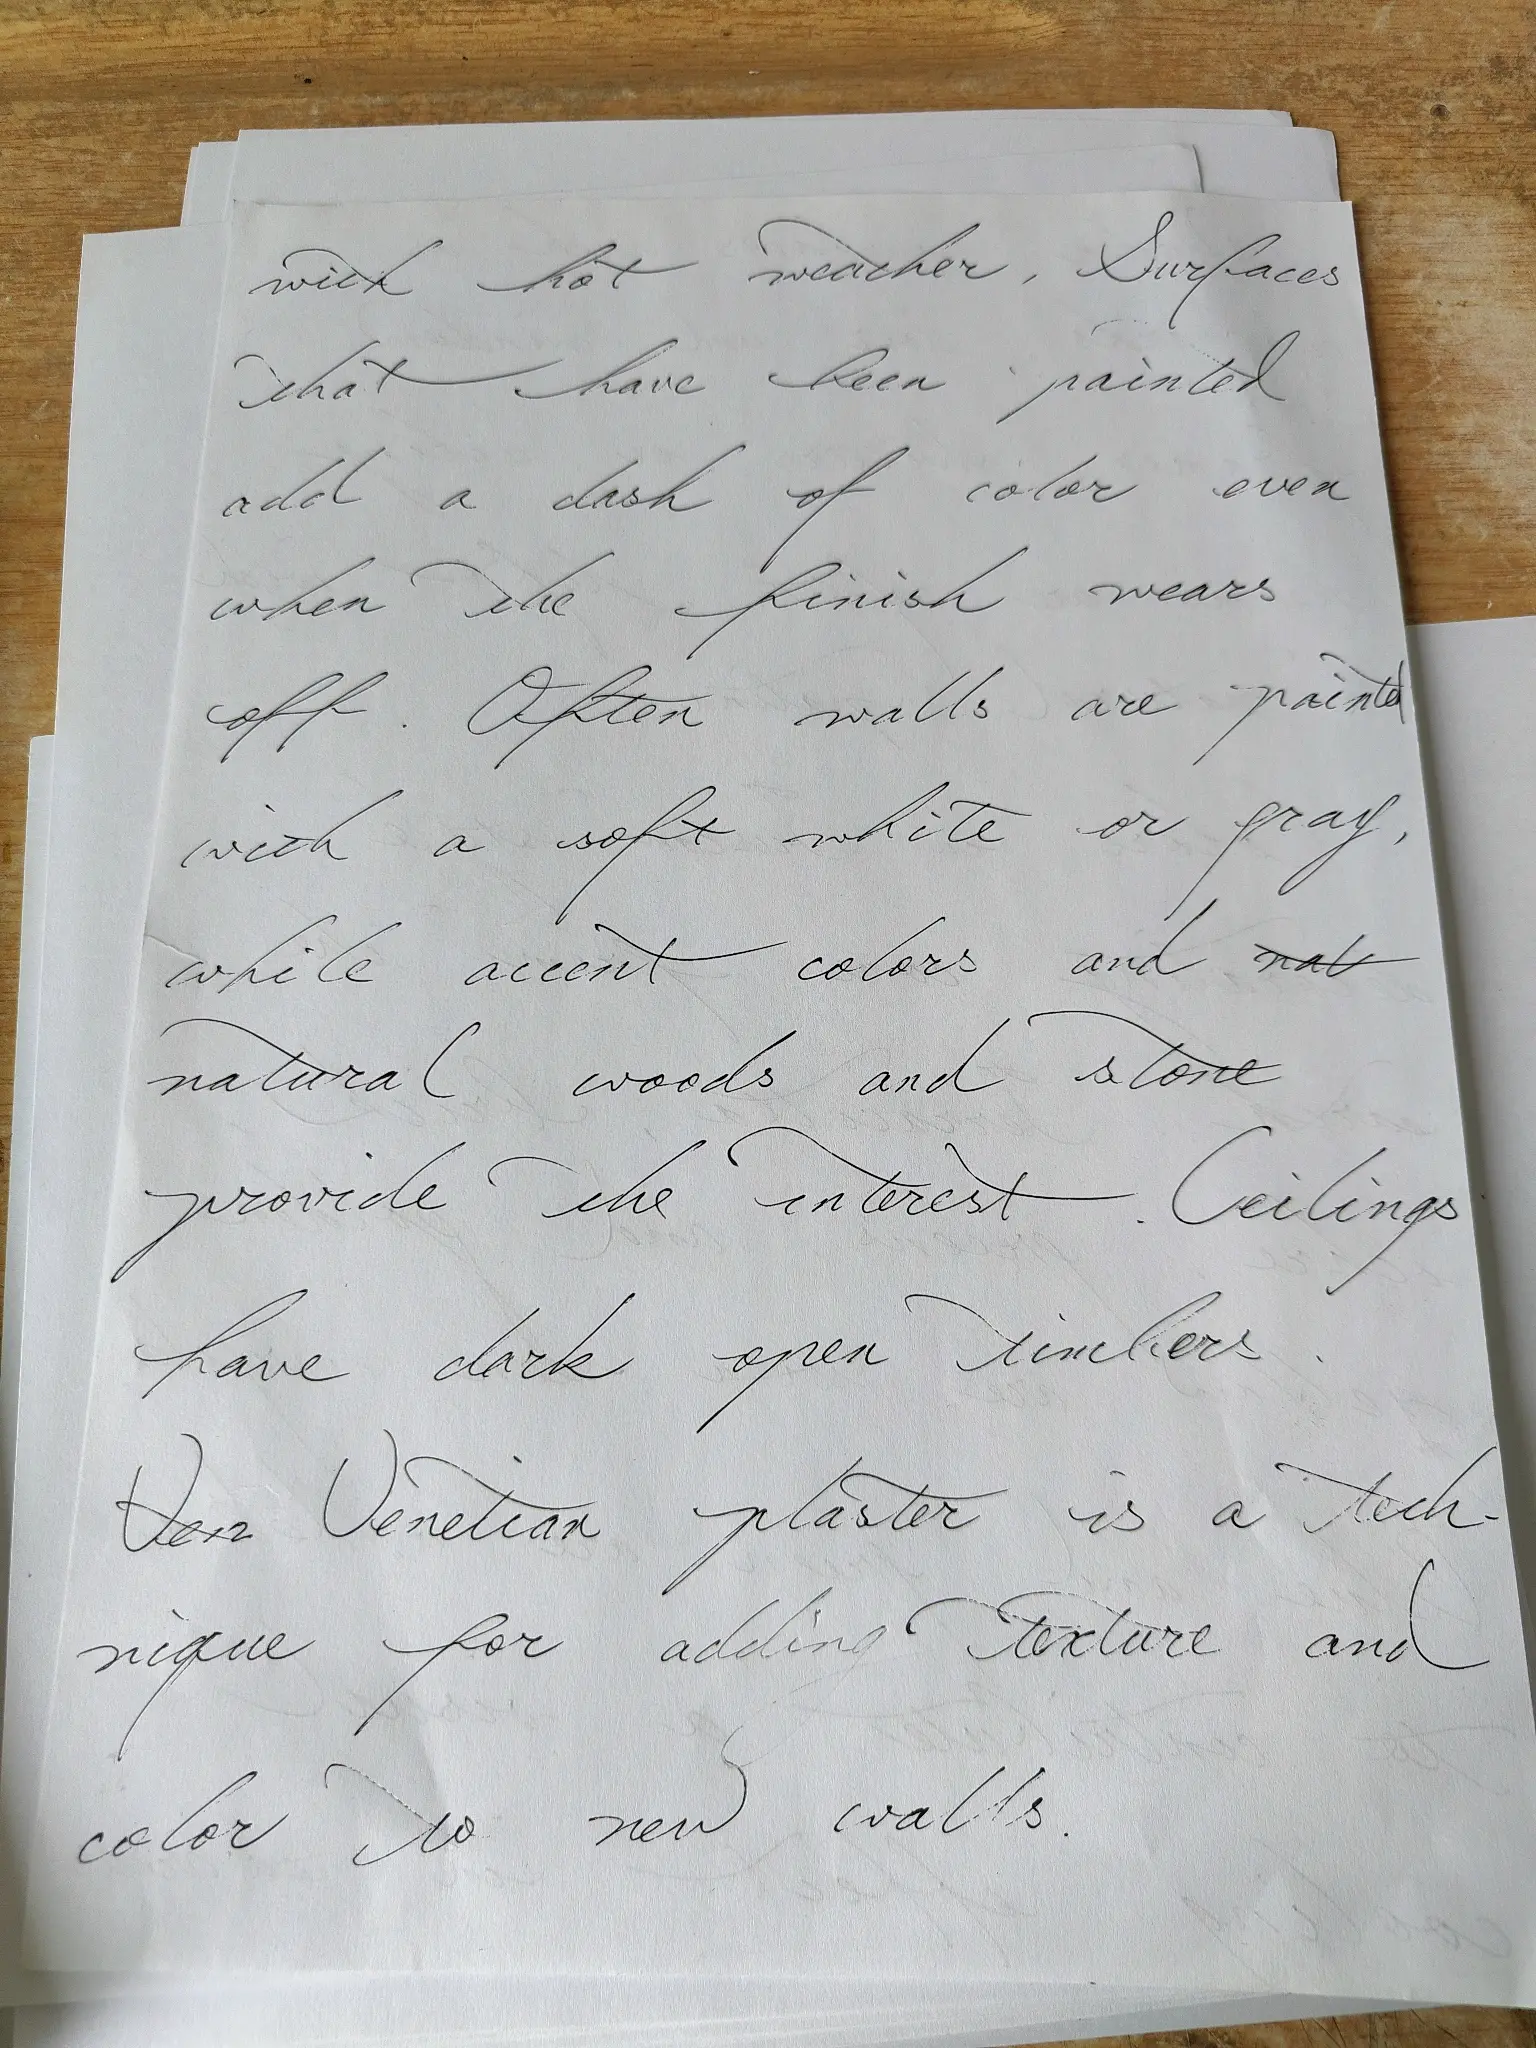 with hot weather. Surfaces
that have been painted
add a dash of color even
when the finish wears
off. Often walls are painted
with a soft white or gray,
while accent colors and nat
natural woods and stone
provide the interest. Ceilings
have dark open timbers.
Ven Venetian plaster is a tech-
nique for adding texture and
color to new walls.